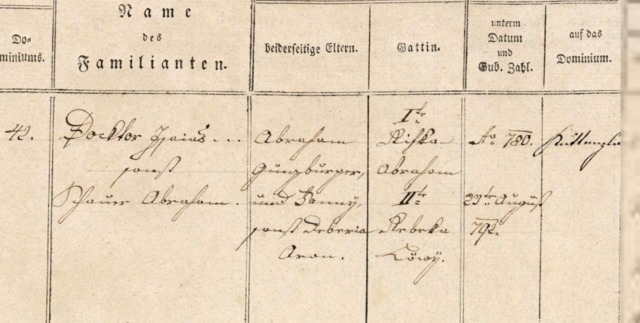 Do-
miniums.
Name
des
Familianten.
beiderseitige Eltern.
Gattin.
unterm
Datum
und
Gub. Zahl.
auf das
Dominium.
42.
Docktor Isaias
sonst
Schauer Abraham.
Abraham
Güngburger,
und Fanny,
sonst Deberia
Aron.
Ite
Rißka
Abraham
IIte
Rebeka
Löwy.
Ao 780.
23te August
792.